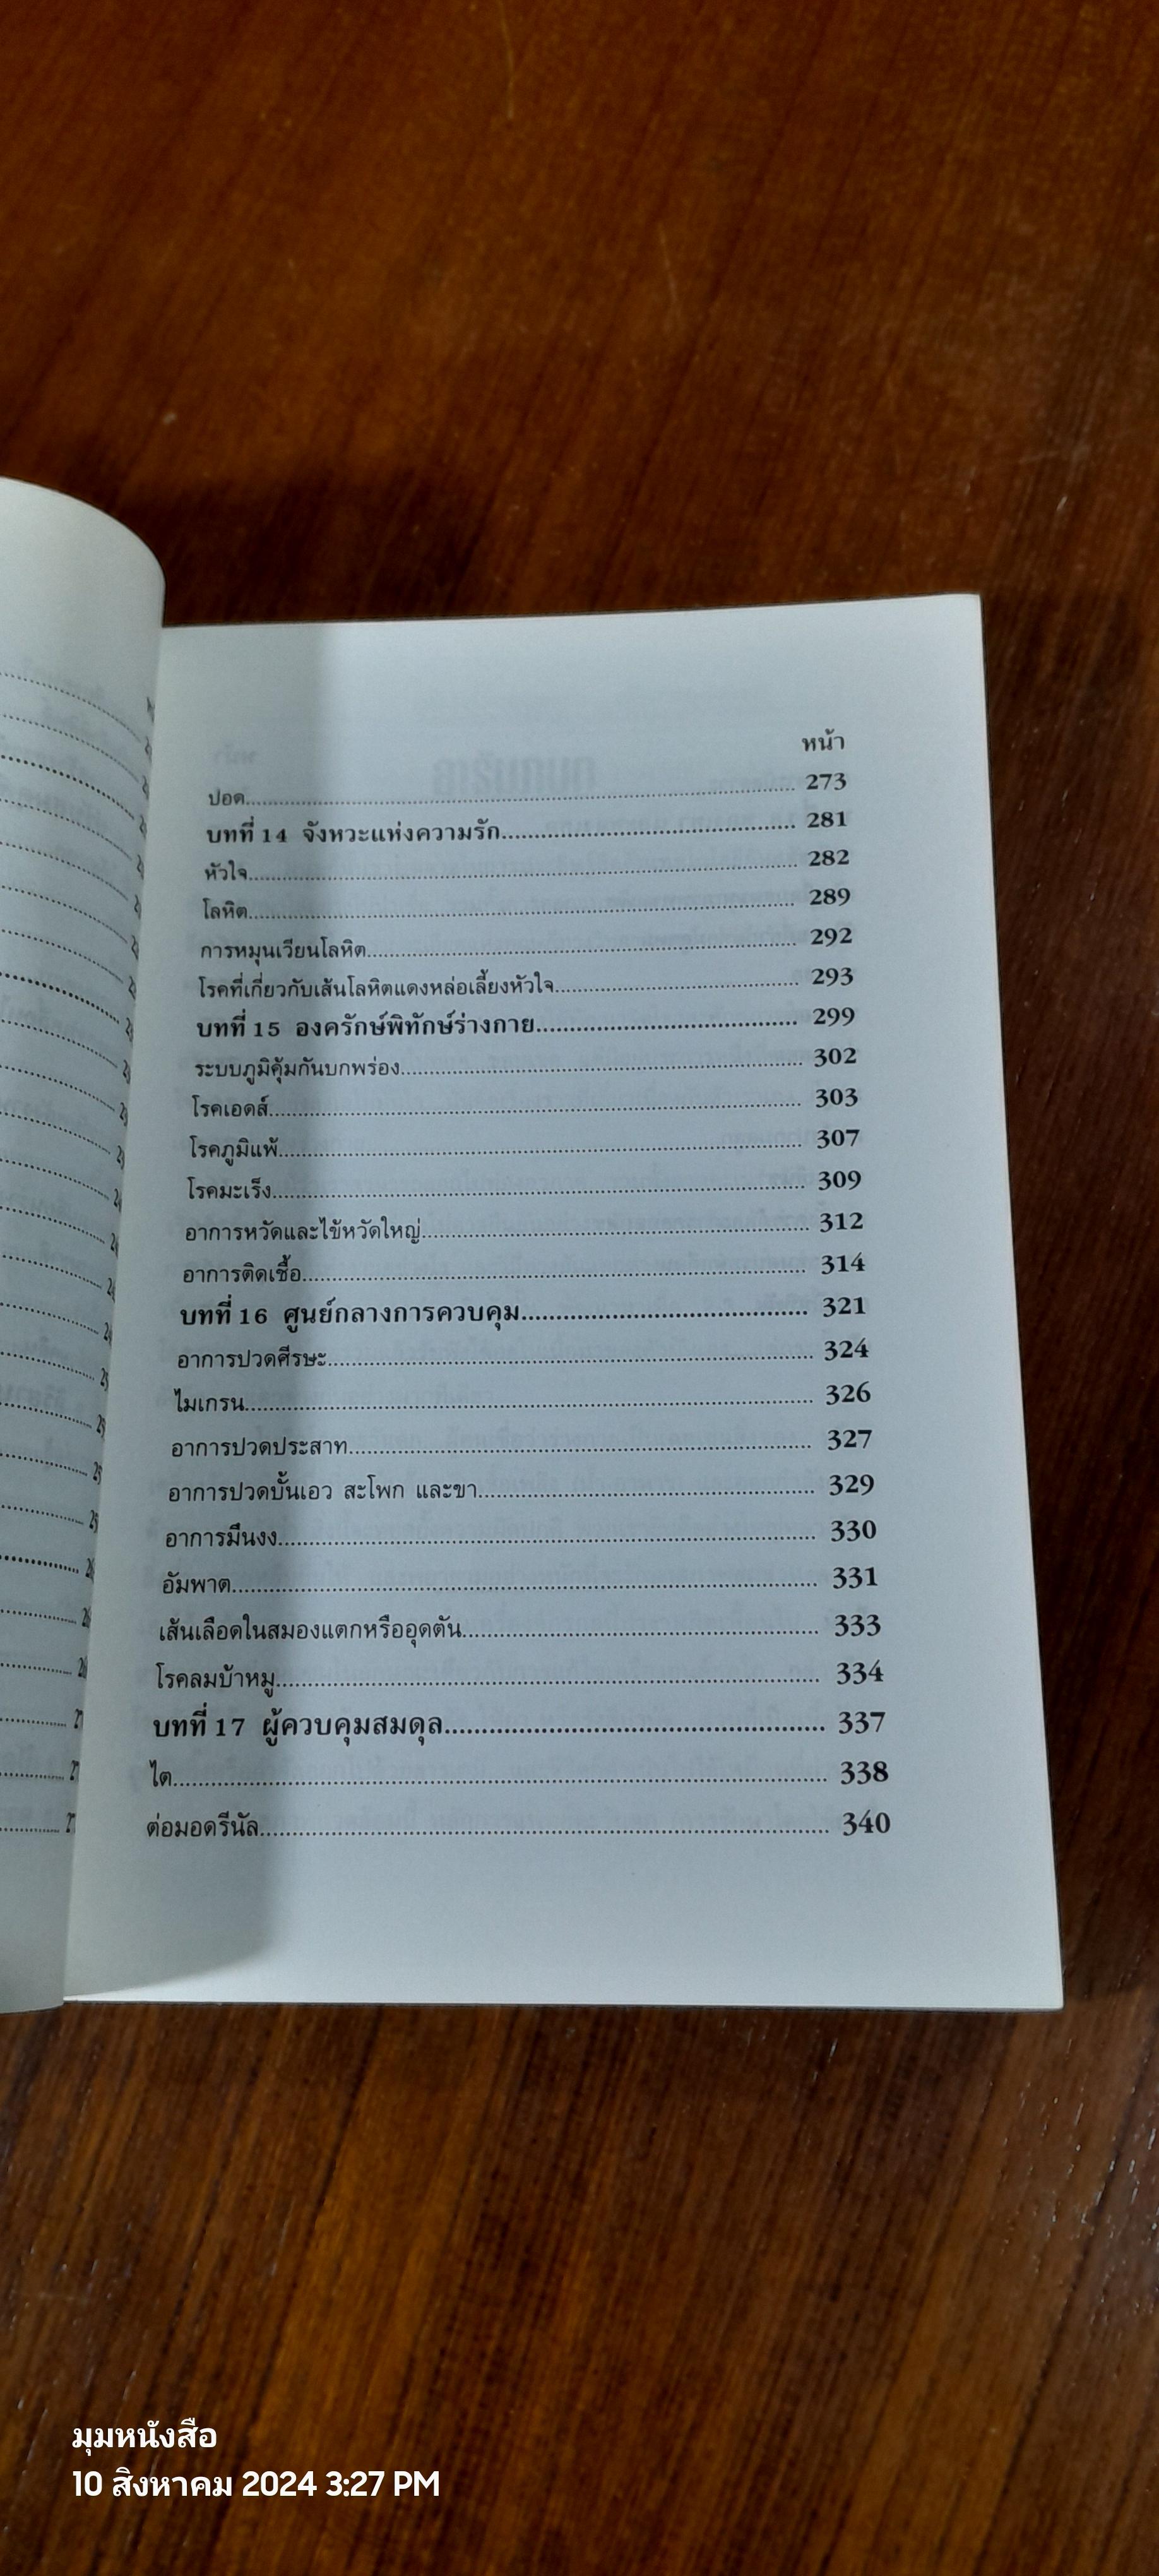 หน้า
ปอด.......... 273
บทที่ 14 จังหวะแห่งความรัก.......... 281
หัวใจ.......... 282
โลหิต.......... 289
การหมุนเวียนโลหิต.......... 292
โรคที่เกี่ยวกับเส้นโลหิตแดงหล่อเลี้ยงหัวใจ.......... 293
บทที่ 15 องครักษ์พิทักษ์ร่างกาย.......... 299
ระบบภูมิคุ้มกันบกพร่อง.......... 302
โรคเอดส์.......... 303
โรคภูมิแพ้.......... 307
โรคมะเร็ง.......... 309
อาการหวัดและไข้หวัดใหญ่.......... 312
อาการติดเชื้อ.......... 314
บทที่ 16 ศูนย์กลางการควบคุม.......... 321
อาการปวดศีรษะ.......... 324
ไมเกรน.......... 326
อาการปวดประสาท.......... 327
อาการปวดบั้นเอว สะโพก และขา.......... 329
อาการมึนงง.......... 330
อัมพาต.......... 331
เส้นเลือดในสมองแตกหรืออุดตัน.......... 333
โรคลมบ้าหมู.......... 334
บทที่ 17 ผู้ควบคุมสมดุล.......... 337
ไต.......... 338
ต่อมอดรีนัล.......... 340
มุมหนังสือ
10 สิงหาคม 2024 3:27 PM